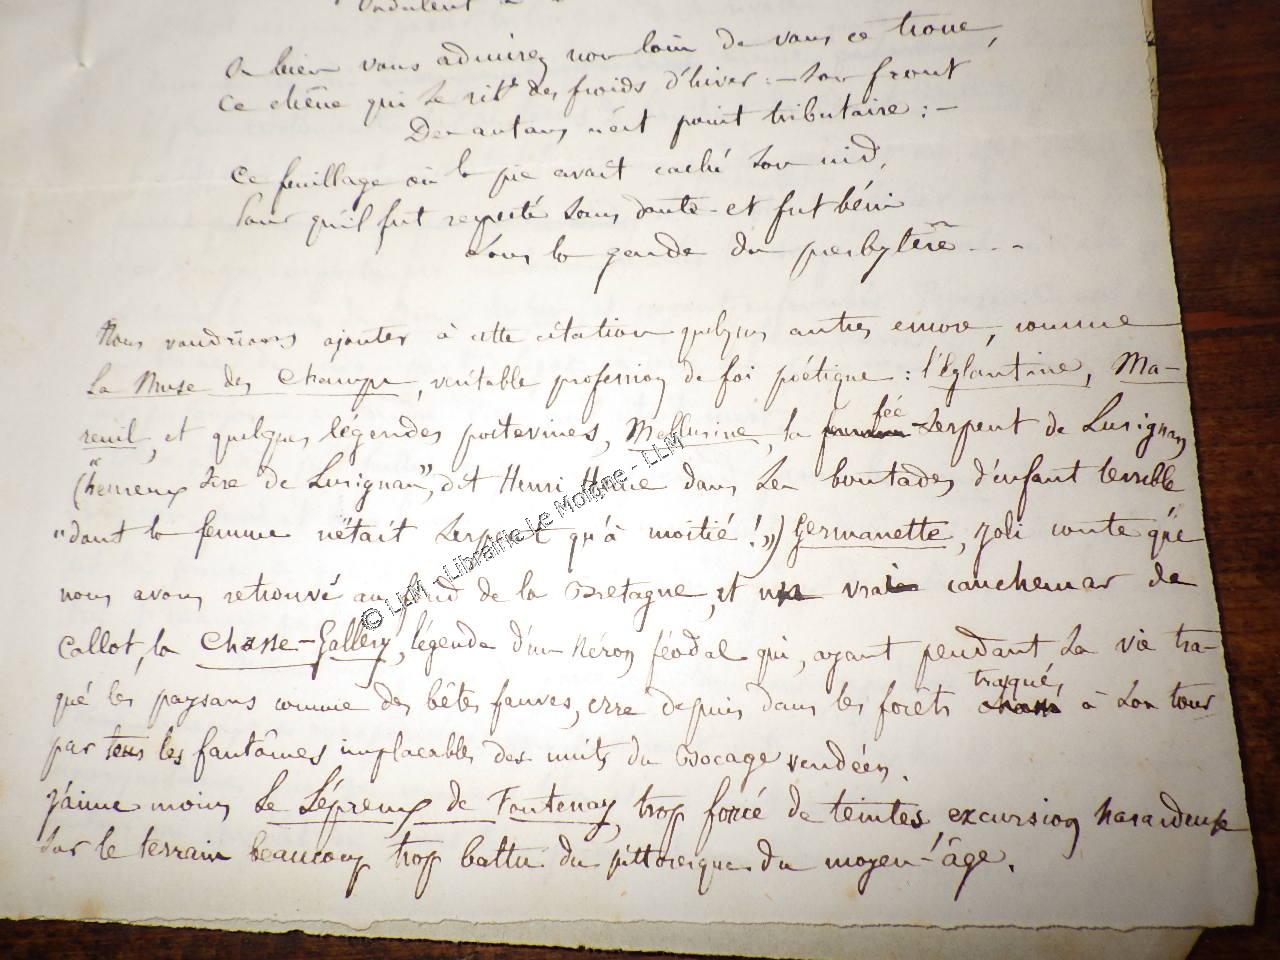 Ondulent
Ou bien vous admirez non loin de vous ce tronc,
Ce chêne qui se rit des froids d'hiver : — son front
Des autans n'est point tributaire : —
Ce feuillage où la pie avait caché son nid,
Pour qu'il fut respecté sans doute - et fut béni
Sous la garde du presbytère - - -
Nous voudrions ajouter à cette citation quelques autres encore, comme
La Muse des Champs, véritable profession de foi poétique : l'Eglantine, Ma-
reuil, et quelques légendes poitevines, Mellusine, la fée serpent de Lusignan
("heureux sire de Lusignan", dit Henri Heine dans ses boutades d'enfant terrible
"dont la femme n'était serpent qu'à moitié !") Germanette, joli conte que
nous avons retrouvé au fond de la Bretagne, et un vrai cauchemar de
Callot, la Chasse-Gallery, légende d'un Néron féodal qui, ayant pendant sa vie tra-
qué les paysans comme des bêtes fauves, erre depuis dans les forêts traqué, à son tour
par tous les fantômes implacables des nuits du Bocage vendéen.
J'aime moins Le Lépreux de Fontenay, trop forcé de teintes excursion hasardeuse
sur le terrain beaucoup trop battu du pittoresque du moyen-âge.
© LLM - Librairie Le Moigne - LLM